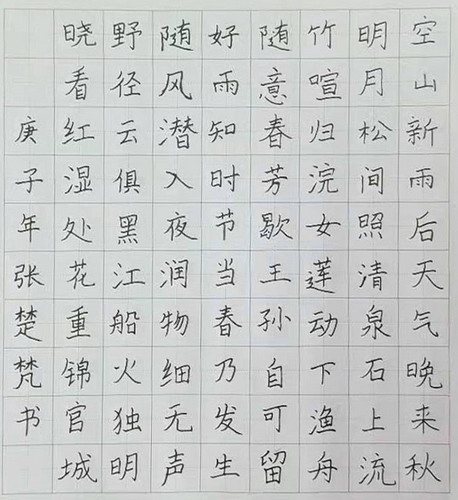 空山新雨后天气晚来秋
明月松间照清泉石上流
竹喧归浣女莲动下渔舟
随意春芳歇王孙自可留
好雨知时节当春乃发生
随风潜入夜润物细无声
野径云俱黑江船火独明
晓看红湿处花重锦官城
庚子年张楚梵书